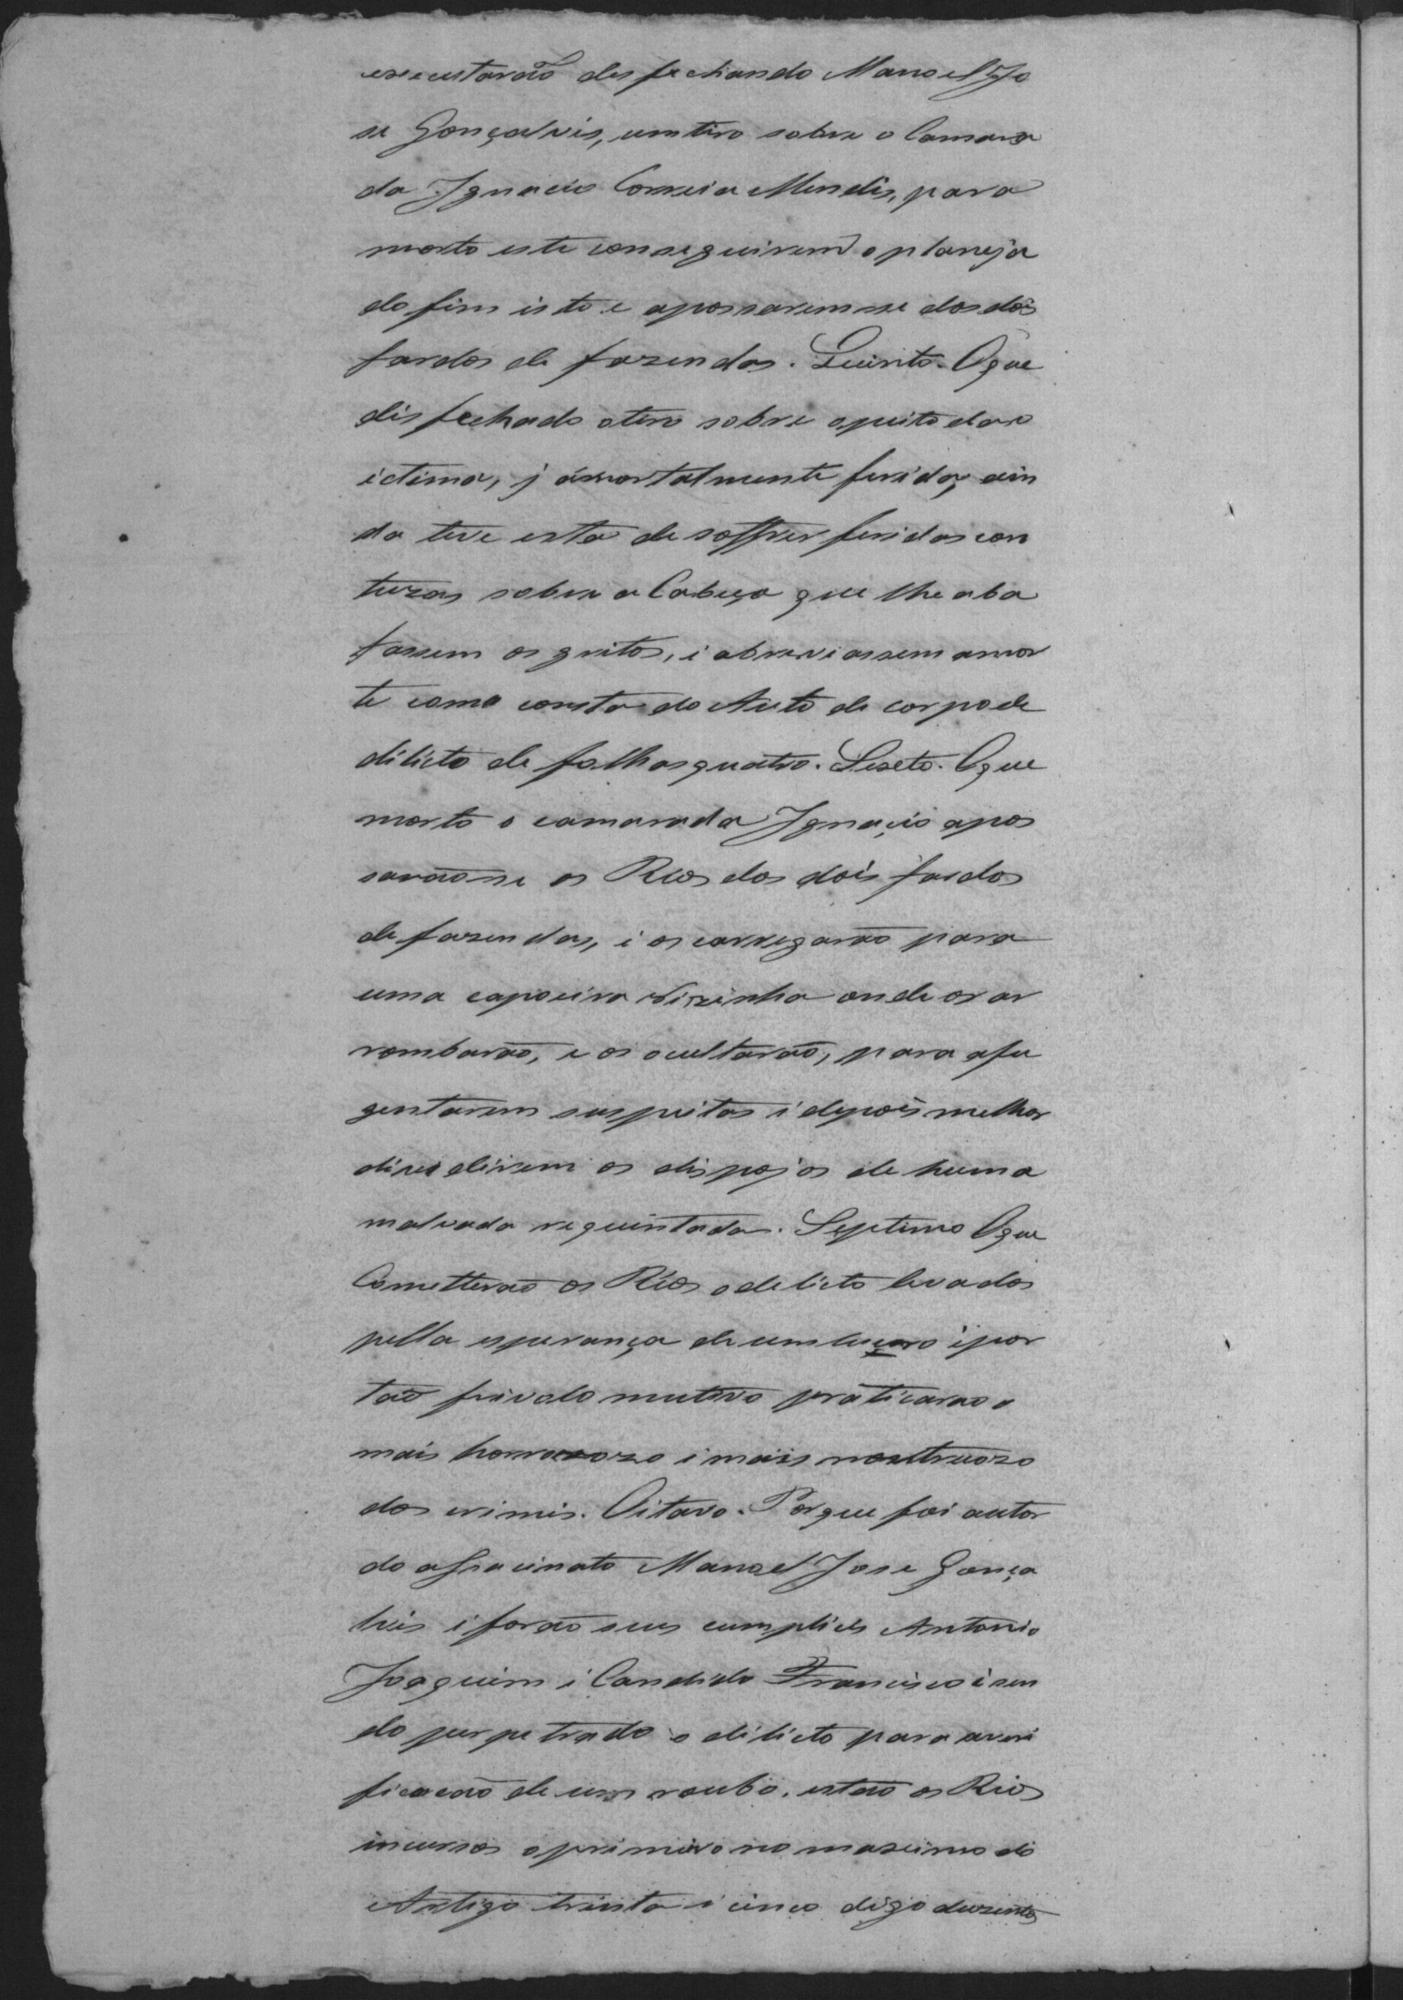 executarão desfechando Manoel Jo
se Gonçalvis, um tiro sobre o Camara
da Ignacio Correia Mendis, para
morto este conseguirem o planeja
do fim isto e apossarem se dos dois
fardos de fazendas. Quinto. O que
disfechado o tiro sobre o peito da v
ictima, já mortalmente ferida, ain
da teve esta de soffrer feridas con
tuzas sobre a Cabeça que lhe aba
fassem os gritos, i abreviassem a mor
te como consta do Auto de corpo de
dilicto de folhas quatro. Sexto. O que
morto o camarada Ignacio apos
sarãose os Rios dos dois fardos
de fazendas, i os carregarão para
uma capoeira vizinha onde os ar
rombarão, e os ocultarão, para afu
gentarem suspeitas i depois melhor
dividirem os dispojos de huma
malvada requintada. Septimo O que
Cometterão os Rios o delicto levados
pella esperança de um lucro i por
tão frivolo mutivo praticarão o
mais horrorozo i mais monstruozo
dos crimis. Oitavo. Porque foi autor
do assacinato Manoel Jose Gonça
lvis i forão seus cumplicis Antonio
Joaquim i Candido Francisco i sen
do perpetrado o dilicto para averi
ficacão de um roubo, estão os Rios
incursos o primeiro no maximo do
Artigo trinta i cinco digo duzentos